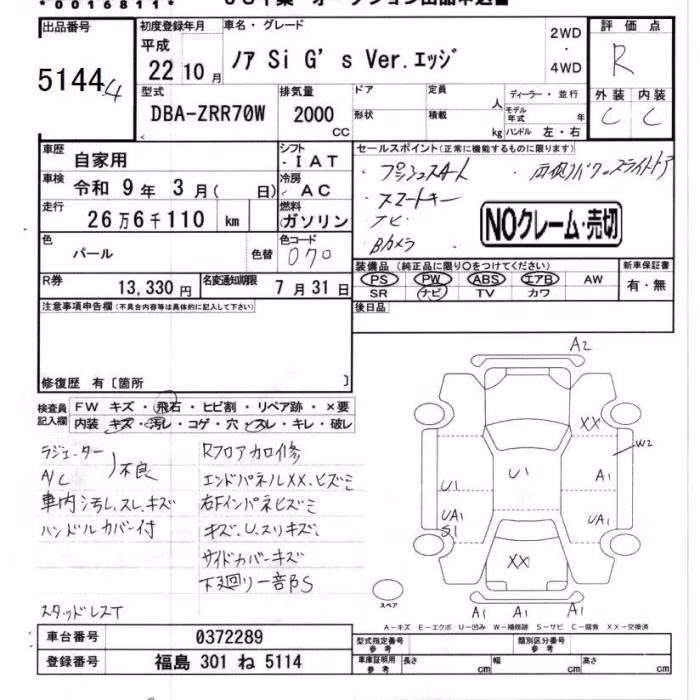 *0016811*
出品番号
5144 4
初度登録年月
平成
22年10月
車名・グレード
ノア Si G's Ver.エッジ
2WD
・
4WD
評価点
R
外装 内装
C C
型式
DBA-ZRR70W
排気量
2000
CC
ドア
形状
定員
人
積載
kg
ディーラー・並行
モデル年式 年
ハンドル 左・右
車歴
自家用
シフト
IAT
車検
令和 9年 3月( 日)
冷房
AC
走行
26万6千110 km
燃料
ガソリン
色
パール
色替
色コード
070
セールスポイント(正常に機能するものに限ります)
・プッシュスタート ・両側パワースライドドア
・スマートキー
ナビ
Bカメラ
NOクレーム・売切
装備品(純正品に限り○をつけてください)
PS PW ABS エアB AW
SR ナビ TV カワ
新車保証書
有・無
R券
13,330 円
名変通知期限
7月31日
後日品
注意事項申告欄(不具合内容等は具体的に記入して下さい)
修復歴 有〔箇所 〕
検査員記入欄
FW キズ・飛石・ヒビ割・リペア跡・×要
内装 キズ・汚レ・コゲ・穴・スレ・キレ・破レ
ラジエーター
A/C
不良
車内汚し、スレ、キズ
ハンドルカバー付
スタッドレスT
Rフロア加修
エンドパネルXX、ヒズミ
右Fインパネヒズミ
キズ、U、スリキズ、
サイドカバーキズ
下廻リ一部S
A2
XX
W2
U1
U1
A1
UA1
S1
UA1
XX
A1 A1 A1
スペア
A-キズ E-エクボ U-凹み W-補修跡 S-サビ C-腐食 XX-交換済
車台番号
0372289
登録番号
福島 301 ね 5114
型式指定番号
参考
類別区分番号
参考
車庫証明用
参考
長さ cm
幅 cm
高さ cm